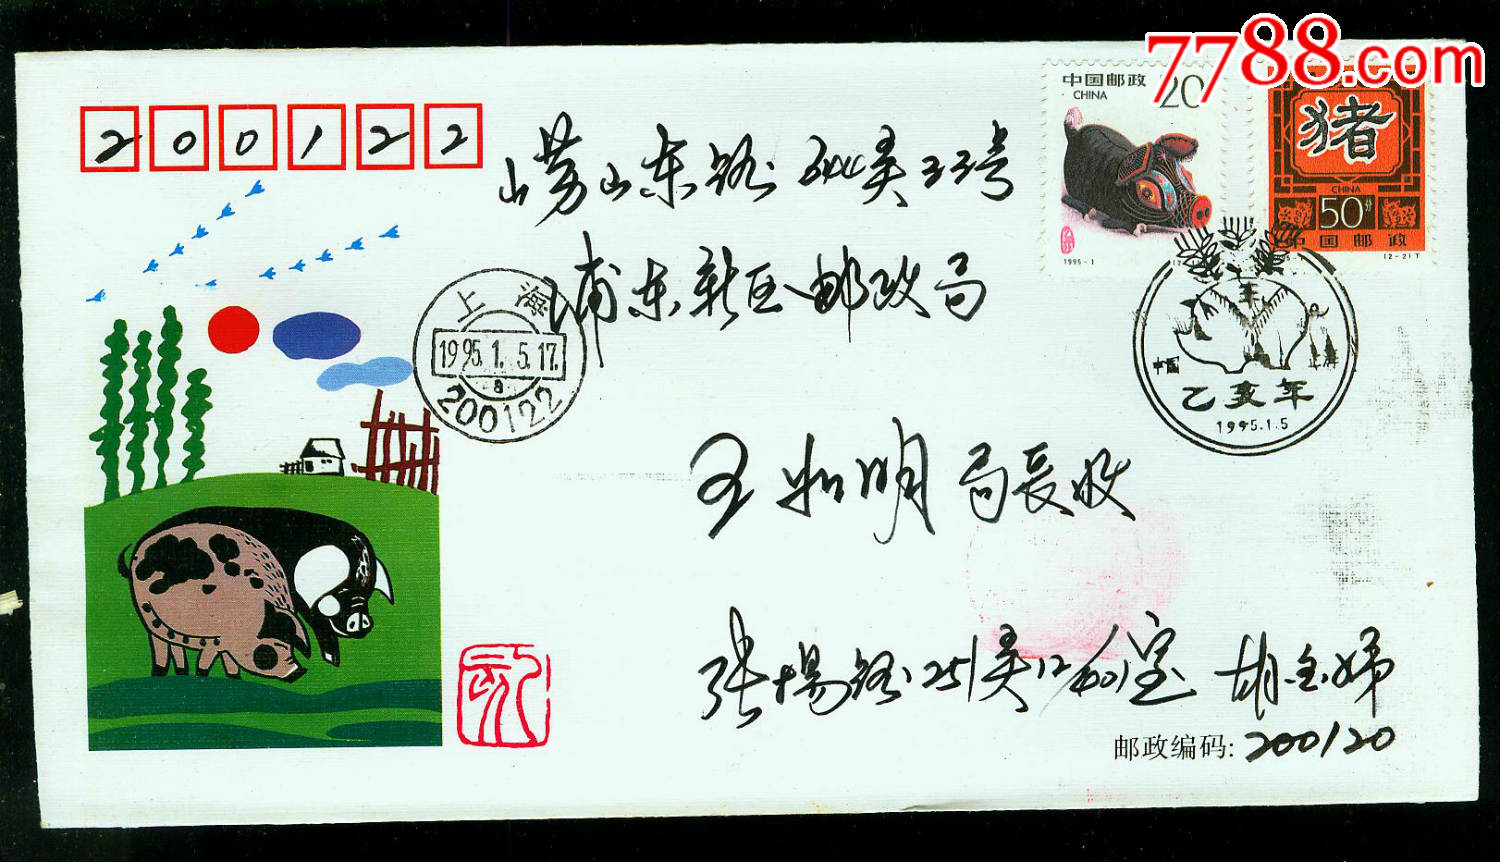 7788.com
中国邮政 20
CHINA
1995-1
猪
CHINA
50分
中国邮政
(2-2)T
200122
崂山东路644弄33号
浦东新区邮政局
上海
1995.1.5.17.
a
200122
中国
乙亥年
1995.1.5
王如明局长收
张杨路251弄12/601室 胡金娣
邮政编码: 200120